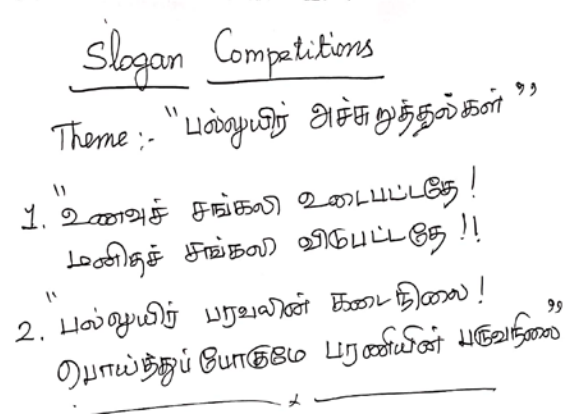 Slogan Competitions
Theme :- "பல்லுயிர் அச்சுறுத்தல்கள்"
1. "உணவுச் சங்கலி உடைபட்டதே !
மனிதச் சங்கலி விடுபட்டதே !!
2. "பல்லுயிர் பரவலின் கடைநிலை !
பொய்த்துப்போகுமே பரணியின் பருவநிலை"
x